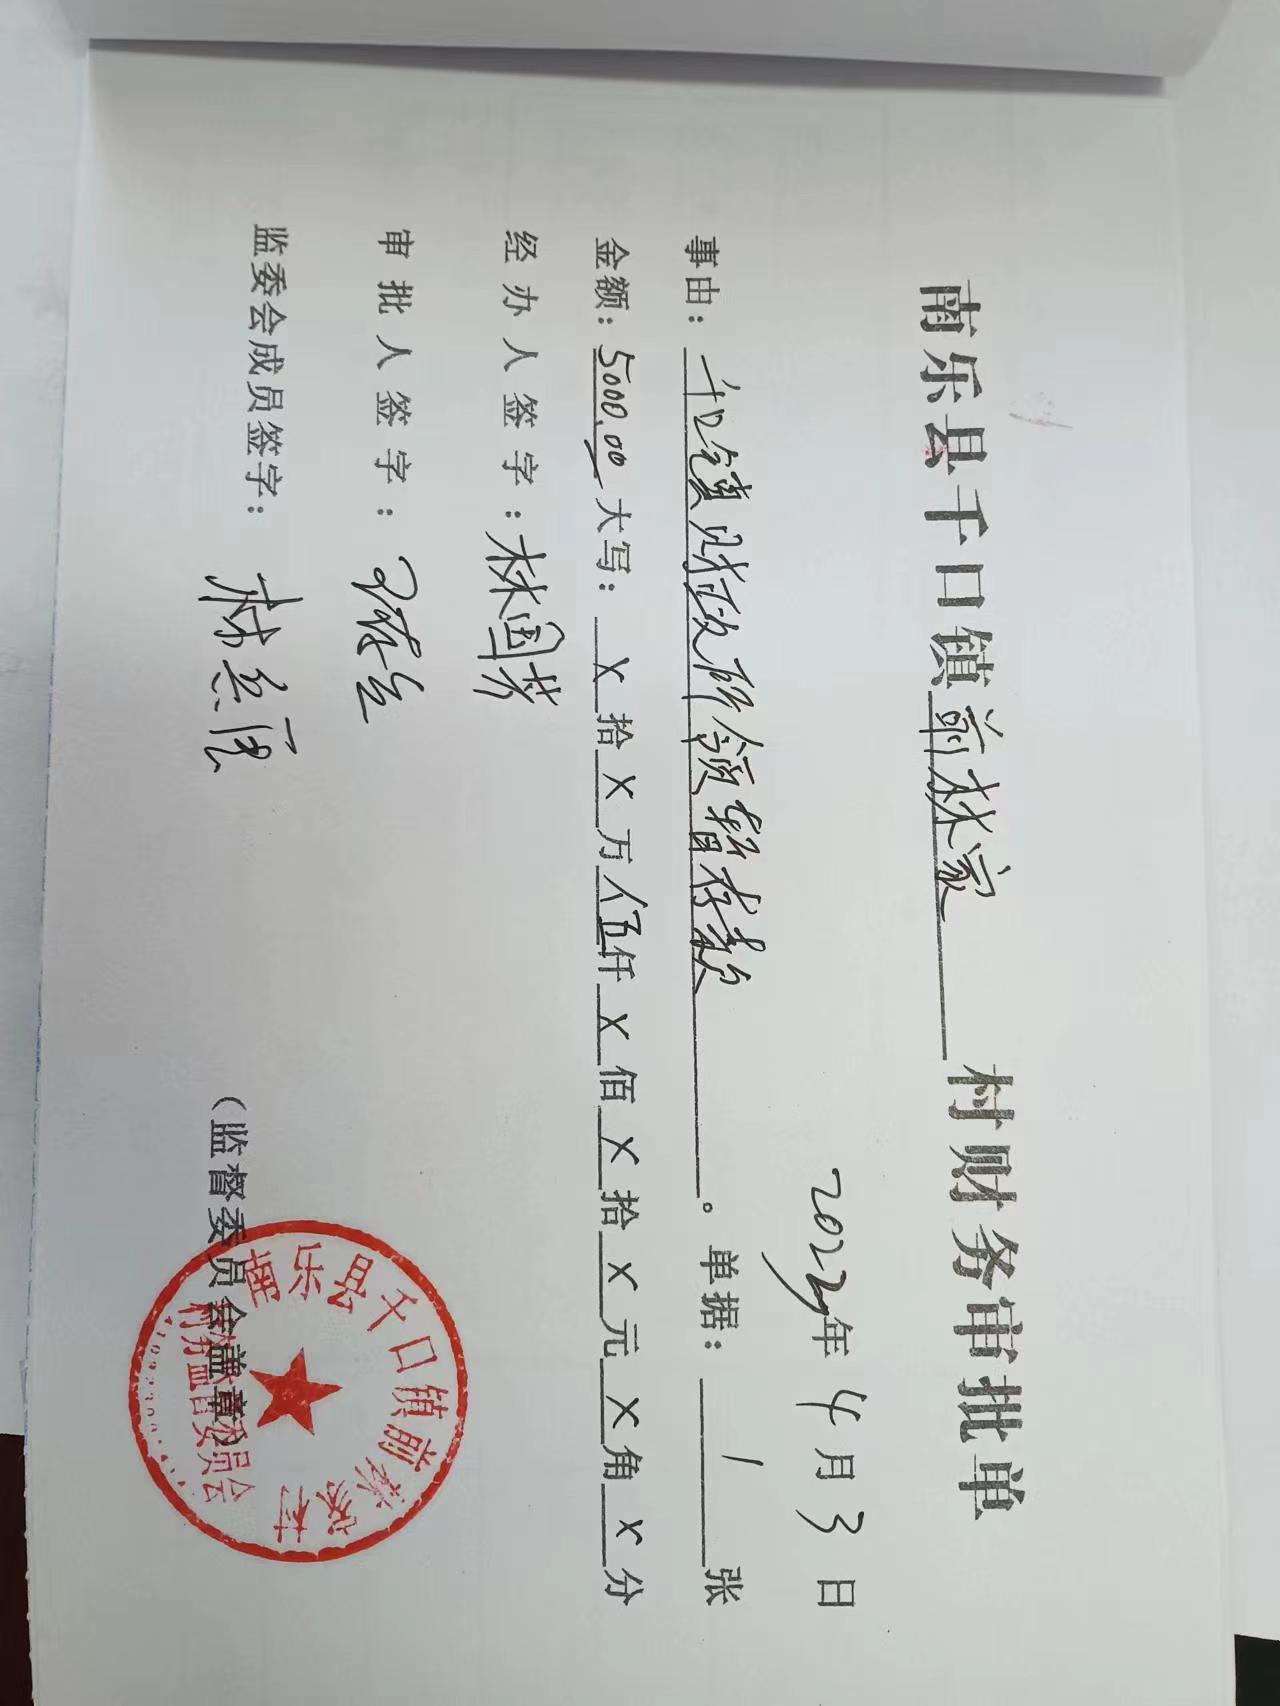 南乐县千口镇前林家村财务审批单
2022年4月3日
事由：千口镇财政所领暂存款。单据：1张
金额：5000.00大写：X拾X万伍仟X佰X拾X元X角X分
经办人签字：林国芳
审批人签字：
监委会成员签字：林
（监督委员会盖章）
南乐县千口镇前林家村
村务监督委员会